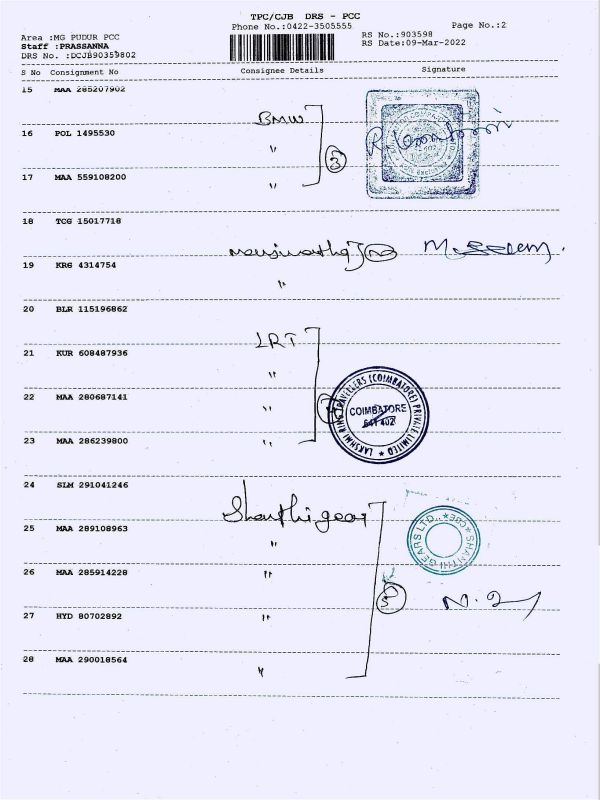 TPC/CJB DRS - PCC
Phone No.:0422-3505555
Page No.:2
Area :MG PUDUR PCC
RS No.:903598
Staff :PRASSANNA
RS Date:09-Mar-2022
DRS No. :DCJB90359802
S No Consignment No Consignee Details Signature
15 MAA 285207902
BMW
16 POL 1495530
"
3
17 MAA 559108200
"
18 TCG 15017718
19 KRG 4314754
"
20 BLR 115196862
LRT
21 KUR 608487936
"
22 MAA 280687141
"
LAKSHMI RING TRAVELLERS (COIMBATORE) PRIVATE LIMITED
COIMBATORE
641 402
23 MAA 286239800
"
24 SLM 291041246
Shanthi gear
25 MAA 289108963
"
SHANTHI GEARS LTD., COE
26 MAA 285914228
"
5
27 HYD 80702892
"
28 MAA 290018564
"